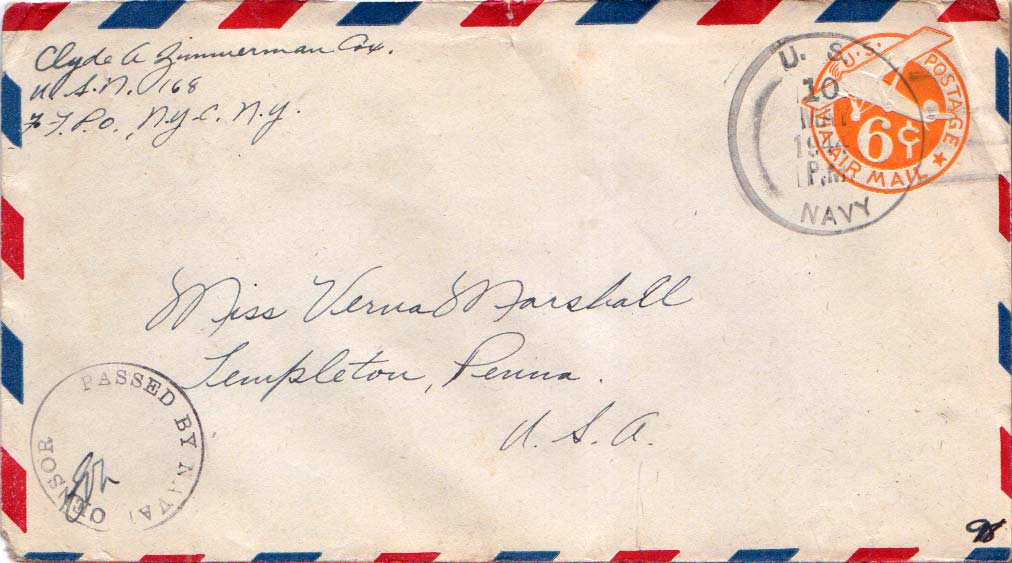 Clyde A Zimmerman Cox.
U.S.N. 168
% F.P.O. N.Y.C. N.Y.
U. S.
10
MAY
1944
1 P.M.
NAVY
U.S. POSTAGE
6¢
VIA AIR MAIL
Miss Verna Marshall
Templeton, Penna.
U. S. A.
PASSED BY NAVAL CENSOR